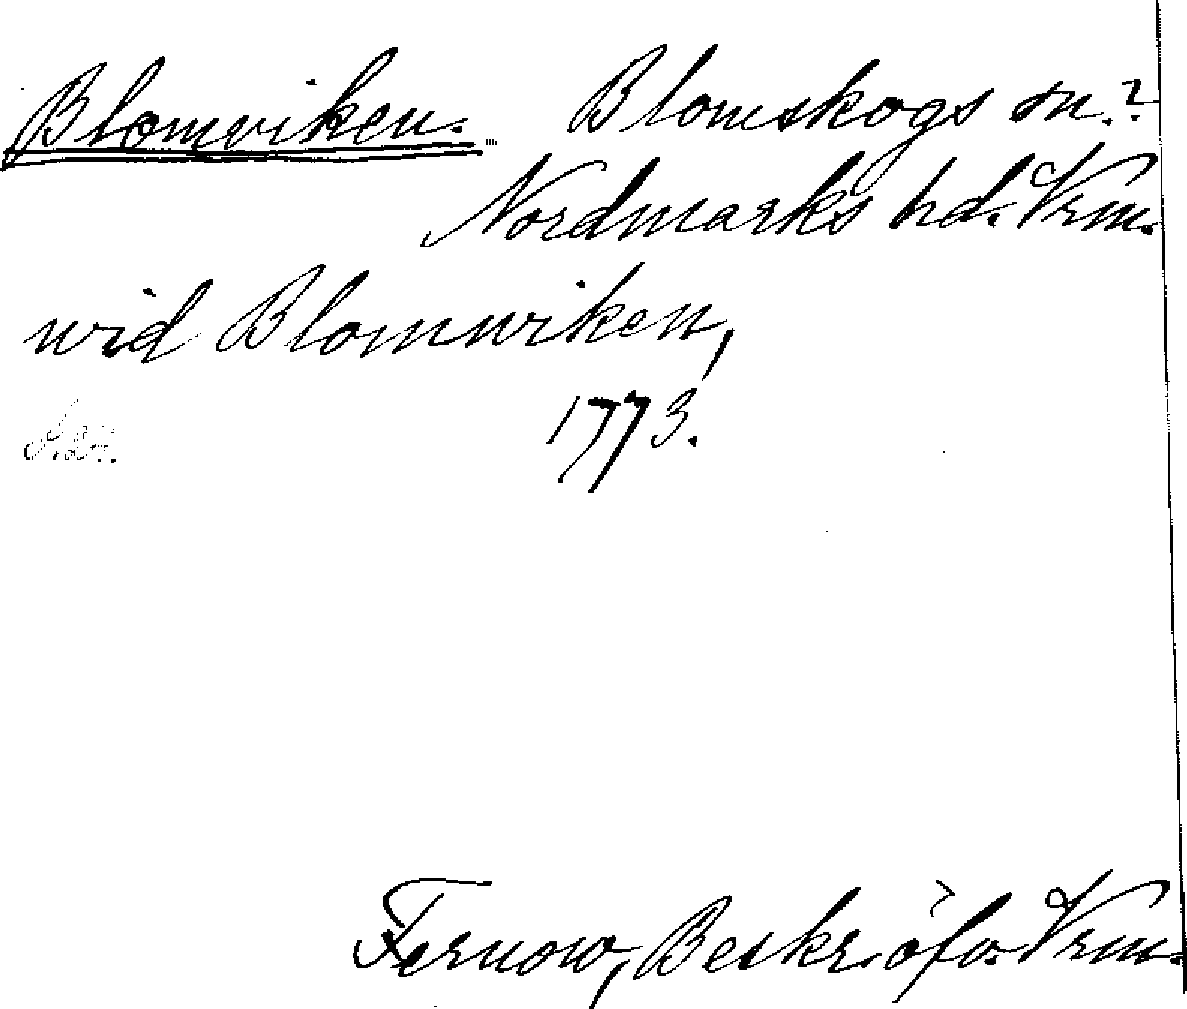 Blomviken. Blomskogs sn.?
Nordmarks hd. Vrm.
wid Blomwiken,
1773.
Fernow, Beskr. öfv. Vrm.